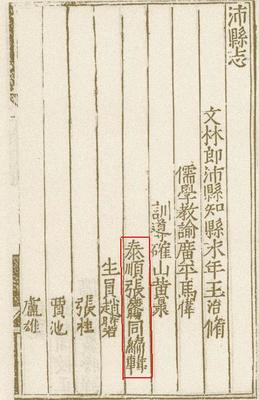 沛縣志
文林郎沛縣知縣永年王治脩
儒學教諭廣平馬偉
訓導確山黄杲
泰順張麐同編輯
生員趙
張桂
賈池
盧雄